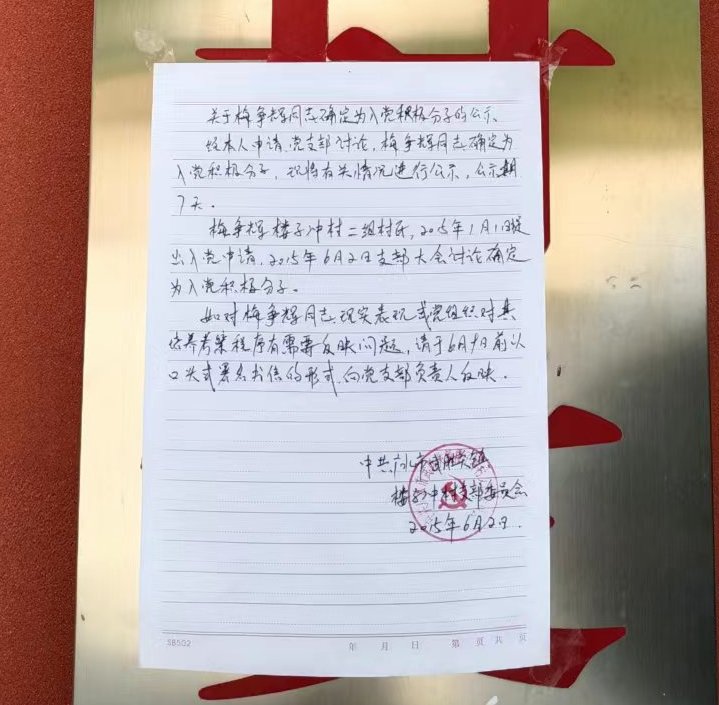 关于梅争辉同志确定为入党积极分子的公示
经本人申请,党支部讨论,梅争辉同志确定为
入党积极分子,现将有关情况进行公示,公示期
7天。
梅争辉 楼子冲村二组村民,2015年1月1日提
出入党申请,2015年6月2日支部大会讨论确定
为入党积极分子。
如对梅争辉同志现实表现或党组织对其
培养考察程序有需要反映问题,请于6月9日前以
口头或署名书信的形式,向党支部负责人反映。
中共广水市武胜关镇
楼子冲村支部委员会
2015年6月2日.
SB502
年 月 日 第 页 共 页